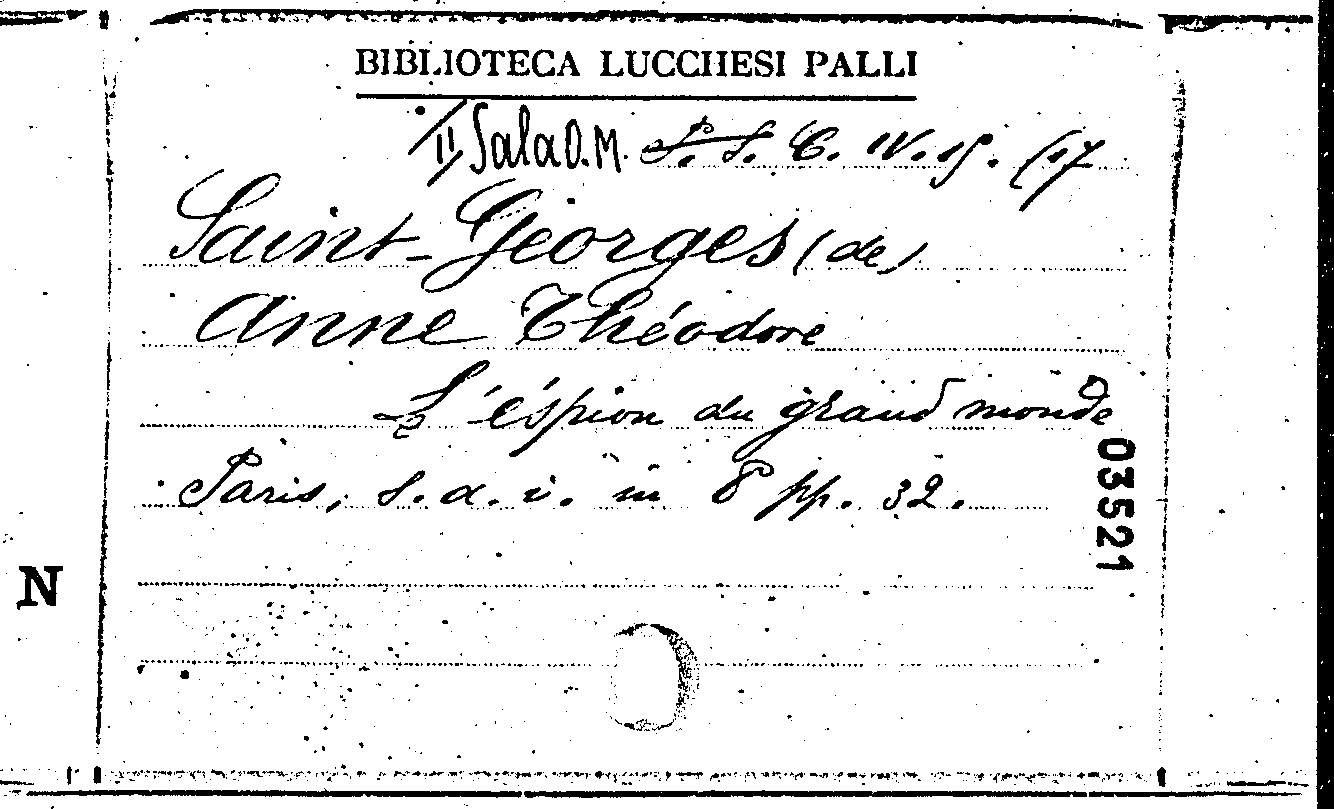 BIBLIOTECA LUCCHESI PALLI
II Sala O.M. P. S. C. IV. 15. (17
Saint-Georges (de)
Anne Théodore
L'éspion du grand monde
Paris, s. a. i. in 8° pp. 32.
03521
N